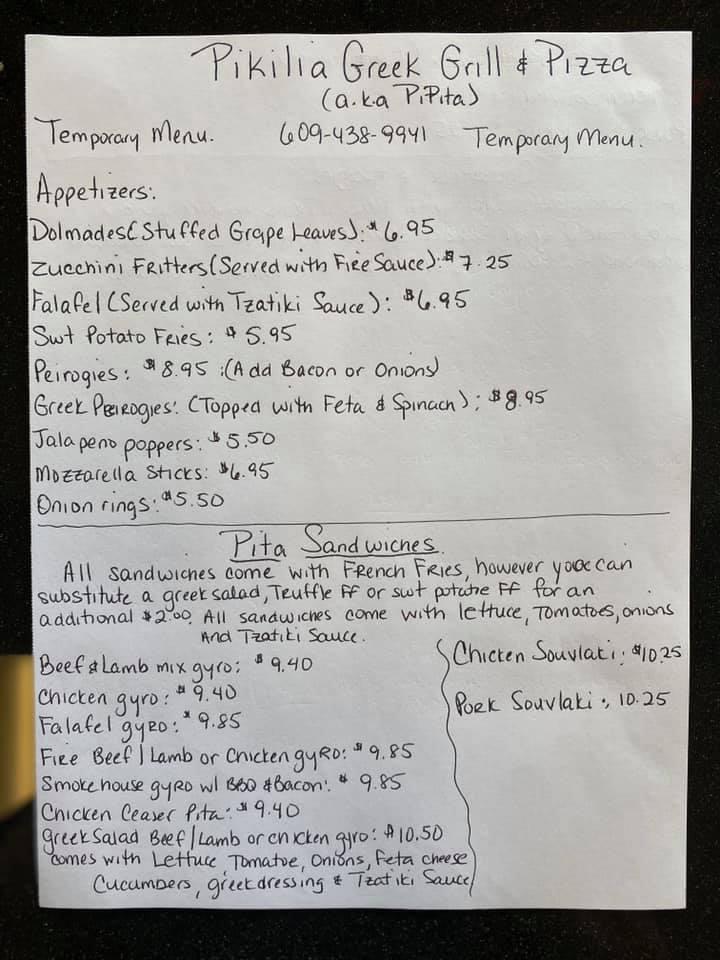 Pikilia Greek Grill & Pizza
(a.k.a PiPita)
Temporary Menu. 609-438-9941 Temporary Menu.
Appetizers:
Dolmades (Stuffed Grape Leaves): $6.95
Zucchini Fritters (Served with Fire Sauce): $7.25
Falafel (Served with Tzatiki Sauce): $6.95
Swt Potato Fries: $5.95
Peirogies: $8.95 :(Add Bacon or Onions)
Greek Peirogies: (Topped with Feta & Spinach): $8.95
Jalapeno poppers: $5.50
Mozzarella Sticks: $6.95
Onion rings: $5.50
Pita Sandwiches
All sandwiches come with French Fries, however you can
substitute a greek salad, Truffle FF or swt potatoe FF for an
additional $2.00. All sandwiches come with lettuce, Tomatoes, onions
And Tzatiki Sauce.
Beef & Lamb mix gyro: $9.40
Chicken gyro: $9.40
Falafel gyro: $9.85
Fire Beef/Lamb or Chicken gyro: $9.85
Smokehouse gyro w/ BBQ & Bacon: $9.85
Chicken Ceaser Pita: $9.40
Greek Salad Beef/Lamb or chicken gyro: $10.50
comes with Lettuce, Tomatoe, Onions, Feta cheese
Cucumbers, greek dressing & Tzatiki Sauce
Chicken Souvlaki: $10.25
Pork Souvlaki: 10.25